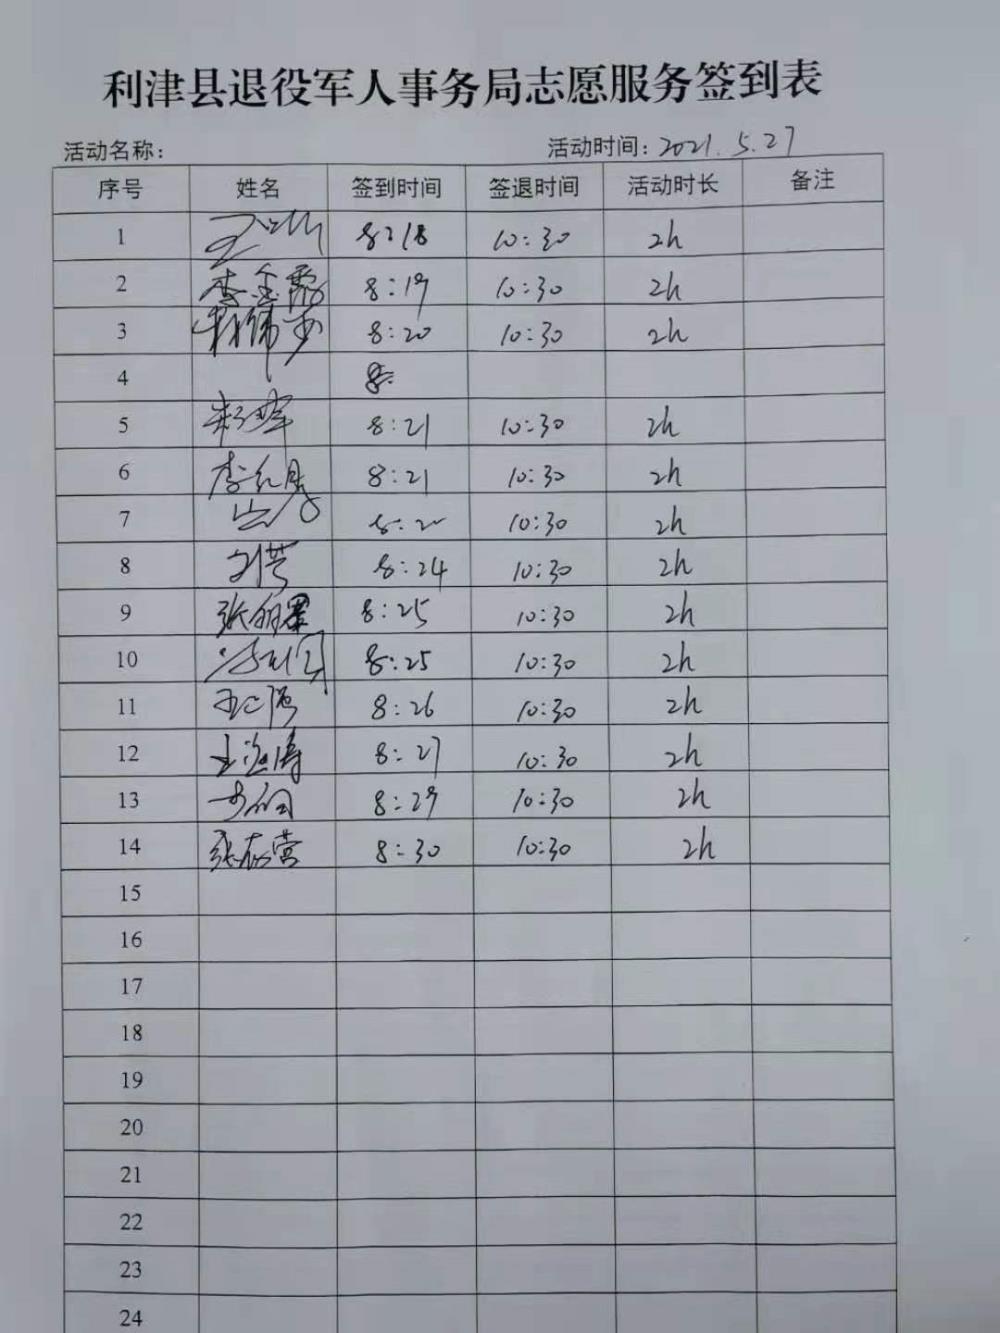 利津县退役军人事务局志愿服务签到表
活动名称： 活动时间：2021.5.27
序号 姓名 签到时间 签退时间 活动时长 备注
1 8:18 10:30 2h
2 8:19 10:30 2h
3 8:20 10:30 2h
4 8:
5 8:21 10:30 2h
6 8:21 10:30 2h
7 10:30 2h
8 8:24 10:30 2h
9 8:25 10:30 2h
10 8:25 10:30 2h
11 8:26 10:30 2h
12 王海涛 8:27 10:30 2h
13 8:29 10:30 2h
14 8:30 10:30 2h
15
16
17
18
19
20
21
22
23
24